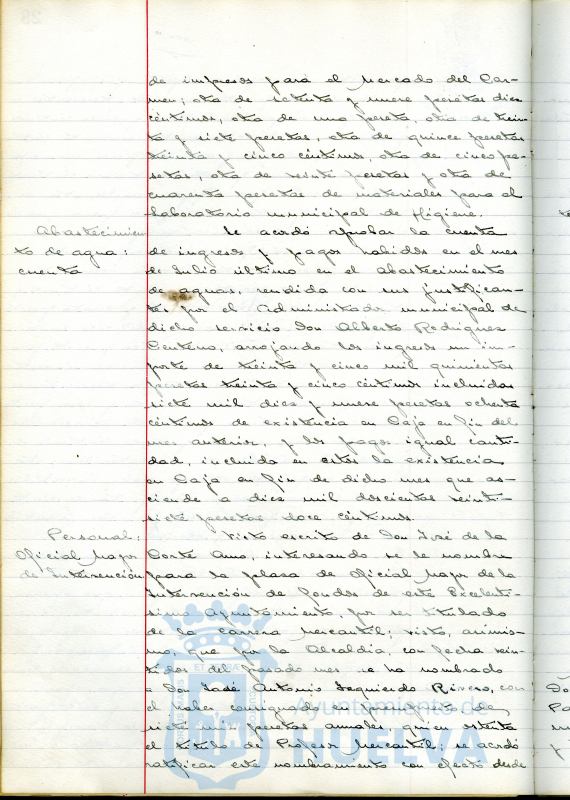 de impresos para el Mercado del Car-
men; otra de setenta y nueve pesetas diez
céntimos, otra de una peseta, otra de trein-
ta y siete pesetas, otra de quince pesetas
treinta y cinco céntimos, otra de cinco pe-
setas, otra de veinte pesetas y otra de
cuarenta pesetas de materiales para el
Laboratorio municipal de Higiene.
Abastecimien
to de agua:
cuenta
Se acordó aprobar la cuenta
de ingresos y pagos habidos en el mes
de Julio último en el abastecimiento
de aguas, rendida con sus justifican-
tes por el Administrador municipal de
dicho servicio Don Alberto Rodríguez
Centeno, arrojando los ingresos un im-
porte de treinta y cinco mil quinientas
pesetas treinta y cinco céntimos incluidas
siete mil diez y nueve pesetas ochenta
céntimos de existencia en Caja en fin del
mes anterior, y los pagos igual canti-
dad, incluida en estos la existencia
en Caja en fin de dicho mes que as-
ciende a diez mil doscientas veinti-
siete pesetas doce céntimos.
Personal:
Oficial Mayor
de Intervención
Visto escrito de Don José de la
Corte Amo, interesando se le nombre
para la plaza de Oficial Mayor de la
Intervención de fondos de este Excelentí-
simo Ayuntamiento, por ser titulado
de la carrera Mercantil; visto, asimis-
mo, que por la Alcaldía, con fecha vein-
tidos del pasado mes se ha nombrado
a Don José Antonio Izquierdo Rivero, con
el haber consignado en presupuesto de
siete mil pesetas anuales, quien ostenta
el título de Profesor Mercantil; se acordó
ratificar este nombramiento con efecto desde
Ayuntamiento de
HUELVA